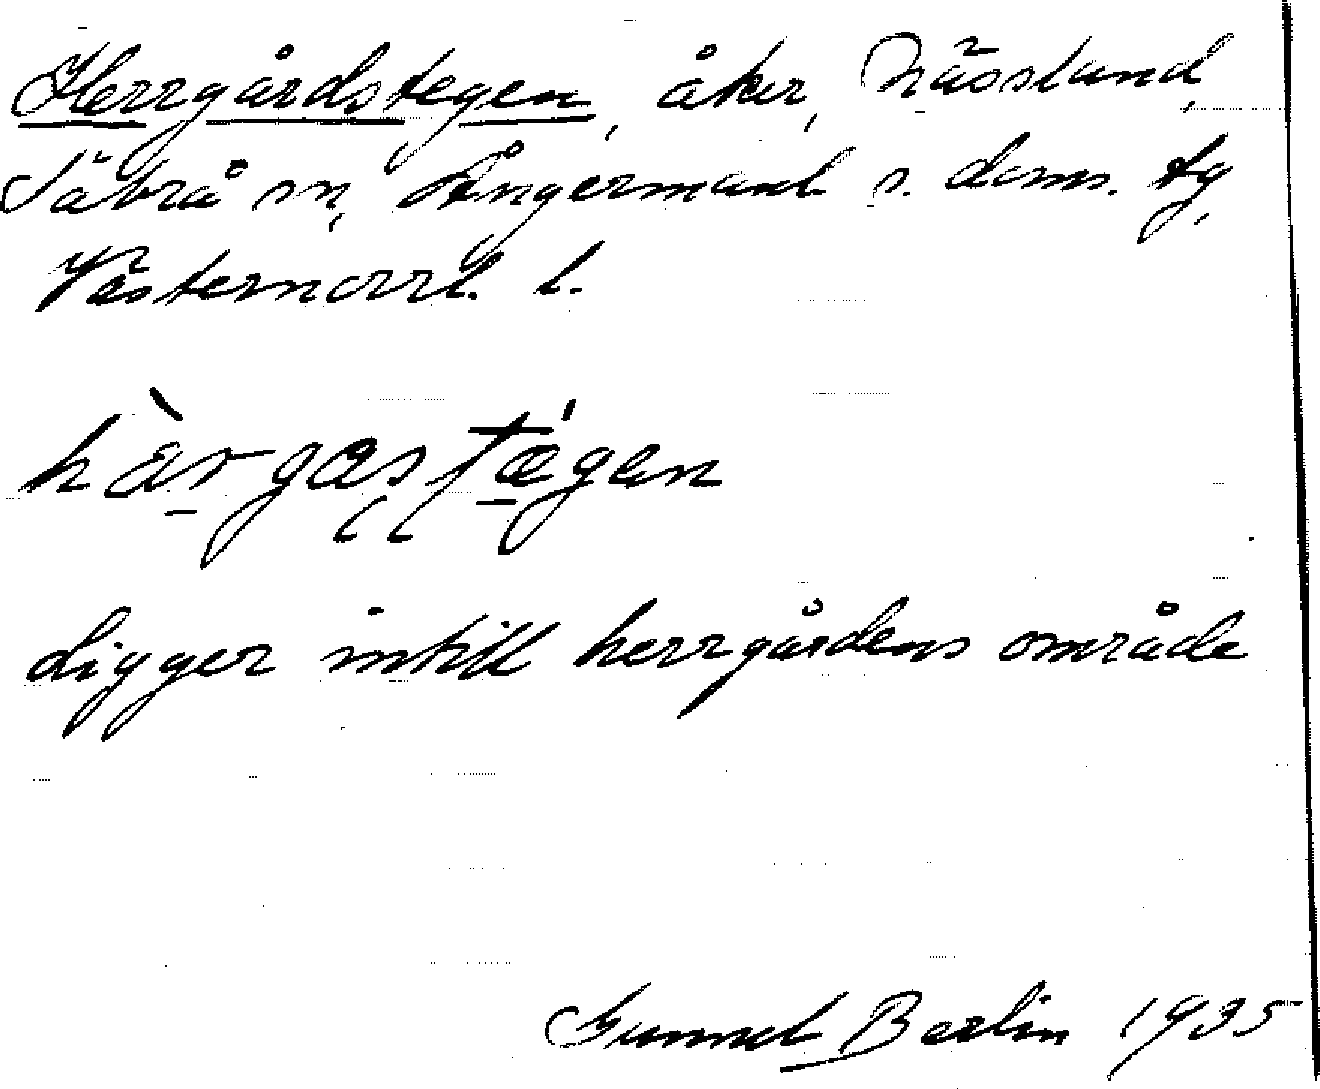 Herrgårdstegen, åker, Nässland,
Säbrå sn, Ångermanl. s. doms. tg,
Västernorrl. l.
hàrgastégen
Ligger intill herrgårdens område
Gunnel Berlin 1935